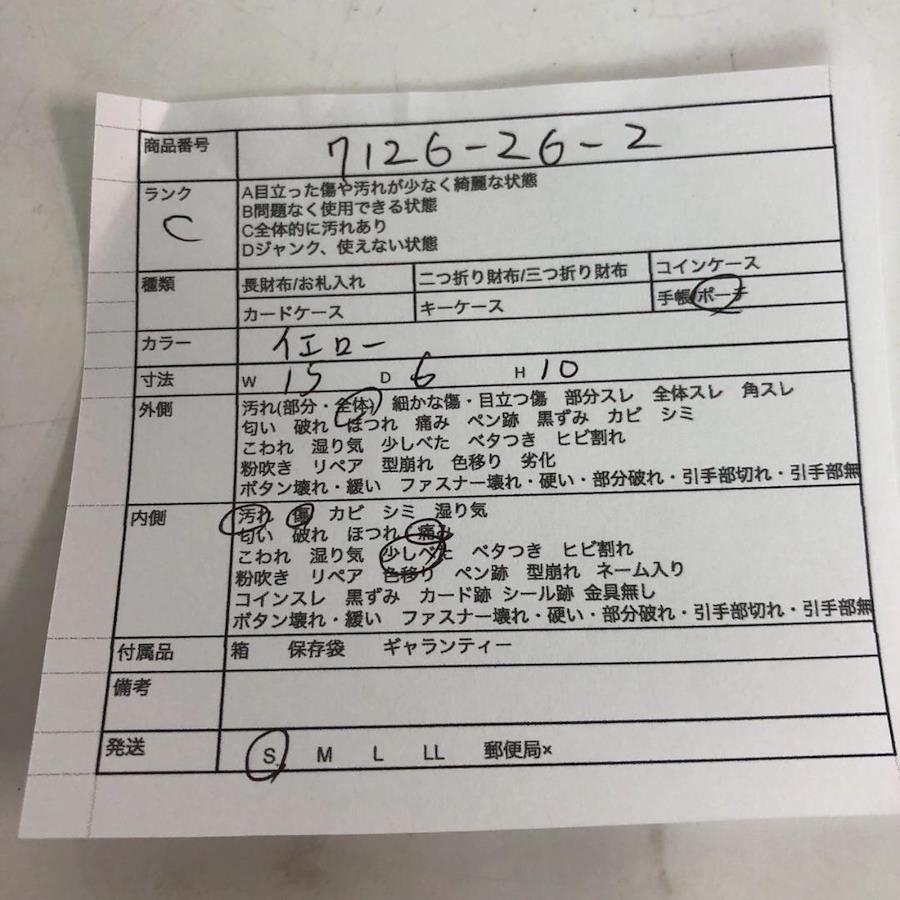 商品番号 7126-26-2
ランク C
A目立った傷や汚れが少なく綺麗な状態
B問題なく使用できる状態
C全体的に汚れあり
Dジャンク、使えない状態
種類 長財布/お札入れ 二つ折り財布/三つ折り財布 コインケース
カードケース キーケース 手帳/ポーチ
カラー イエロー
寸法 W 15 D 6 H 10
外側 汚れ(部分・全体) 細かな傷・目立つ傷 部分スレ 全体スレ 角スレ
匂い 破れ ほつれ 痛み ペン跡 黒ずみ カビ シミ
こわれ 湿り気 少しべた ベタつき ヒビ割れ
粉吹き リペア 型崩れ 色移り 劣化
ボタン壊れ・緩い ファスナー壊れ・硬い・部分破れ・引手部切れ・引手部無
内側 汚れ 傷 カビ シミ 湿り気
匂い 破れ ほつれ 痛み
こわれ 湿り気 少しべた ベタつき ヒビ割れ
粉吹き リペア 色移り ペン跡 型崩れ ネーム入り
コインスレ 黒ずみ カード跡 シール跡 金具無し
ボタン壊れ・緩い ファスナー壊れ・硬い・部分破れ・引手部切れ・引手部無
付属品 箱 保存袋 ギャランティー
備考
発送 S M L LL 郵便局×